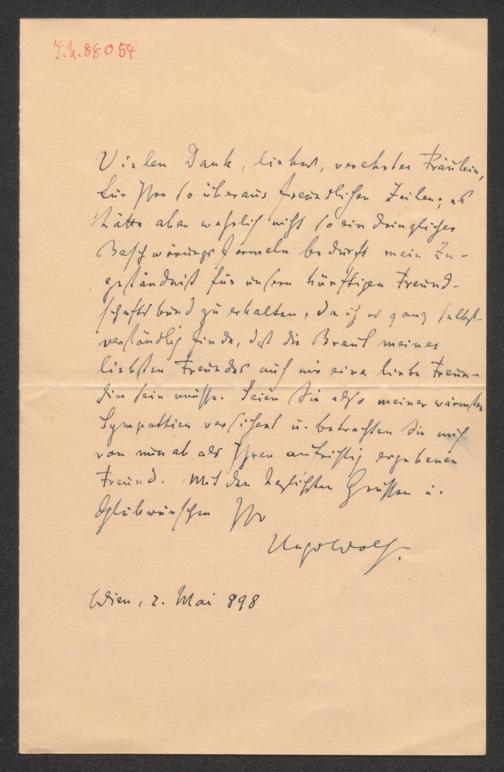 I.N. 88054
Vielen Dank, liebes, verehrtes Fräulein,
für Ihre so überaus freundlichen Zeilen; es
hätte aber wahrlich nicht so eindringlicher
Beschwörungsformeln bedurft mein Zu-
geständniß für unsern künftigen Freund-
schaftsbund zu erhalten, da ich es ganz selbst-
verständlich finde, daß die Braut meines
liebsten Freundes auch mir eine liebe Freun-
din sein müsse. Seien Sie also meiner wärmsten
Sympathien versichert u. betrachten Sie mich
von nun ab als Ihren aufrichtig ergebenen
Freund. Mit den herzlichsten Grüssen u.
Glückwünschen Ihr
Hugo Wolf.
Wien, 2. Mai 898